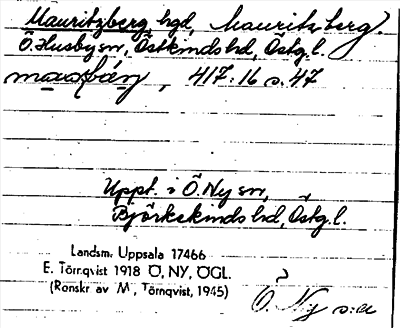 Mauritzberg hgd, Mauritzberg.
Ö. Husby sn, Östkinds hd, Östg. l.
417:16 s. 47
Uppt. i Ö. Ny sn,
Björkekinds hd, Östg. l.
Landsm. Uppsala 17466
E. Törnqvist 1918 Ö, NY, ÖGL.
(Renskr av M, Törnqvist, 1945)
Ö. Ny s:a